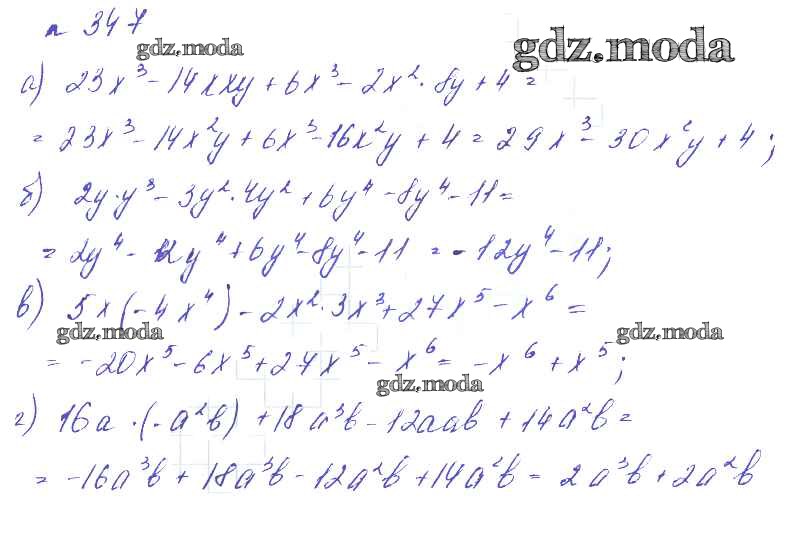 n 347
gdz.moda
gdz.moda
а) 23x³ - 14xxy + 6x³ - 2x² · 8y + 4 =
= 23x³ - 14x²y + 6x³ - 16x²y + 4 = 29x³ - 30x²y + 4;
б) 2y · y³ - 3y² · 4y² + 6y⁴ - 8y⁴ - 11 =
= 2y⁴ - 12y⁴ + 6y⁴ - 8y⁴ - 11 = -12y⁴ - 11;
в) 5x(-4x⁴) - 2x² · 3x³ + 27x⁵ - x⁶ =
gdz.moda
gdz.moda
= -20x⁵ - 6x⁵ + 27x⁵ - x⁶ = -x⁶ + x⁵;
gdz.moda
г) 16a · (-a²b) + 18a³b - 12aab + 14a²b =
= -16a³b + 18a³b - 12a²b + 14a²b = 2a³b + 2a²b